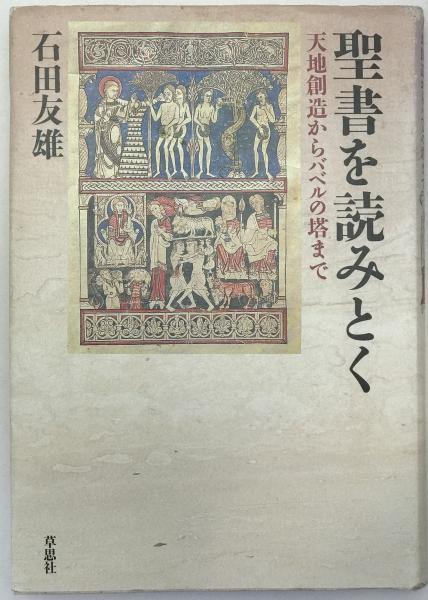 聖書を読みとく
天地創造からバベルの塔まで
石田友雄
草思社